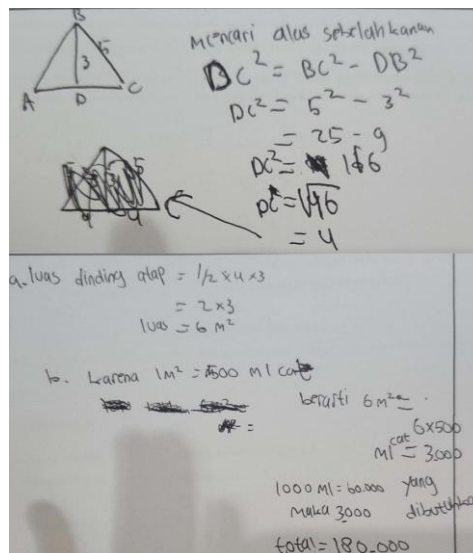 B
5
3
A
D
C
5
4
4
Mencari alas sebelah kanan
DC² = BC² - DB²
DC² = 5² - 3²
= 25 - 9
DC² = 16
DC = √16
= 4
a. luas dinding atap = 1/2 x 4 x 3
= 2 x 3
luas = 6 m²
b. karena 1 m² = 500 ml cat
berarti 6 m² =
6 x 500
ml cat = 3.000
1000 ml = 60.000 yang
maka 3000 dibutuhka
total = 180.000